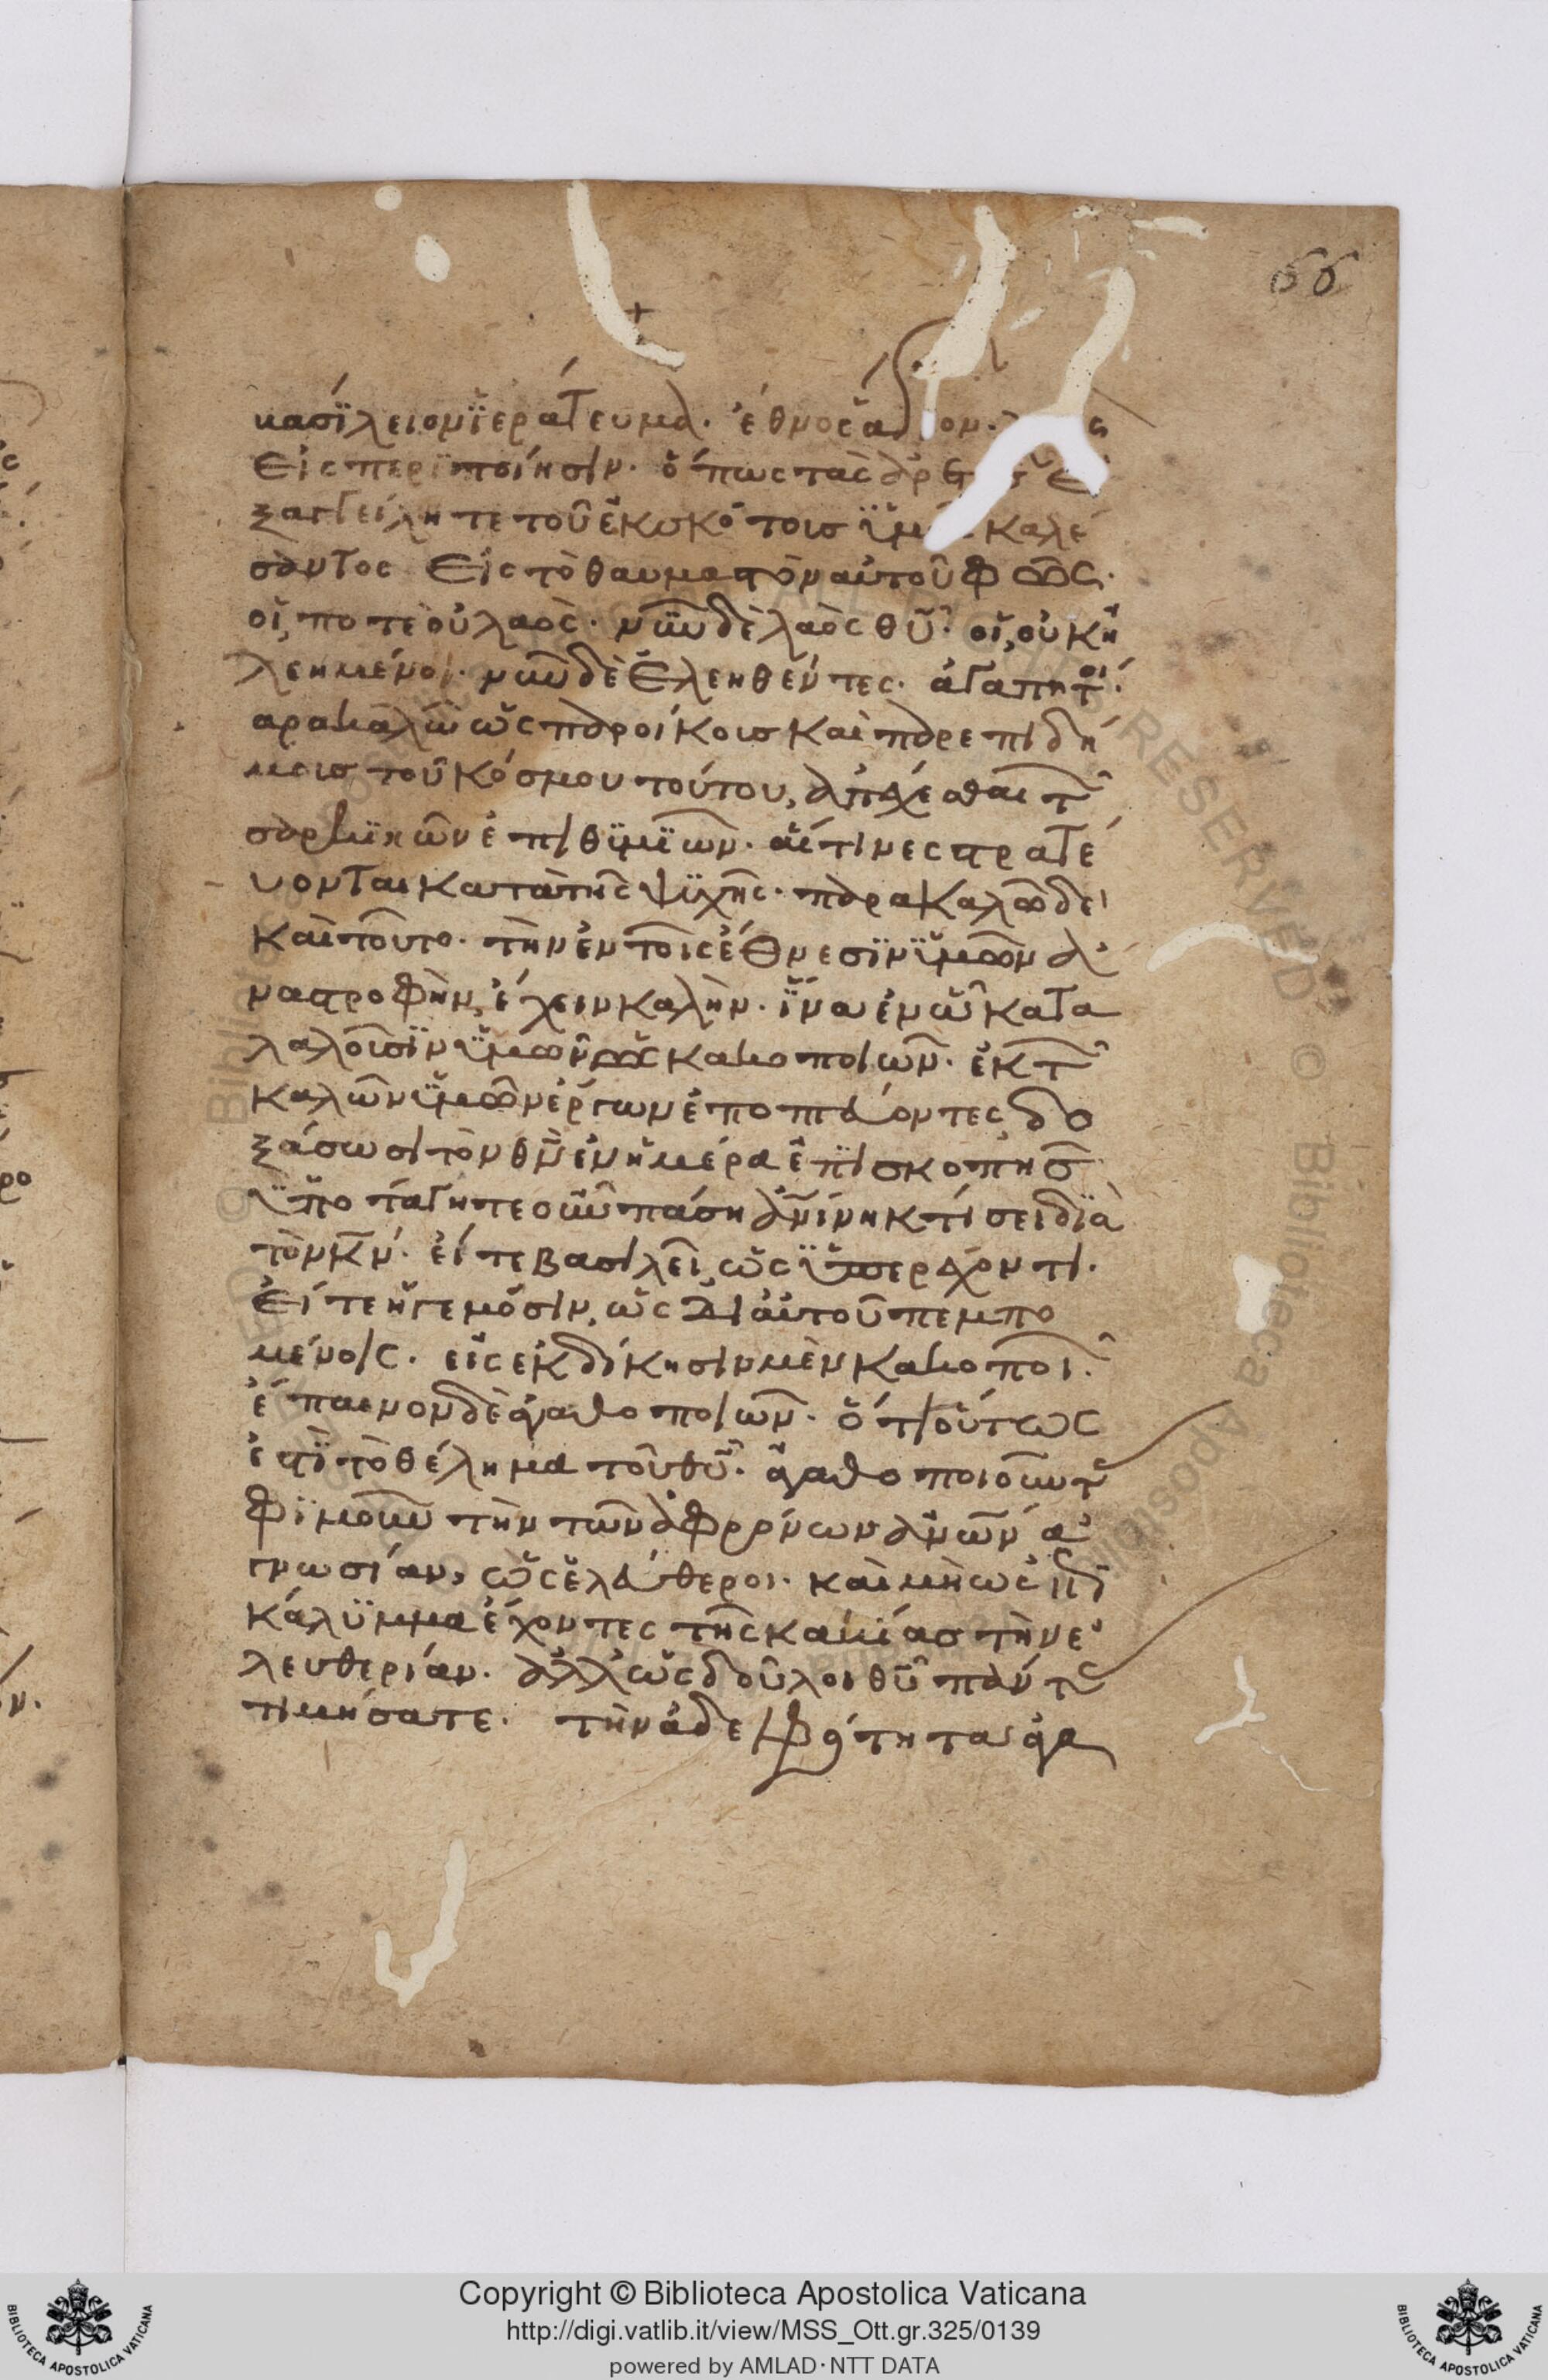 66
βασΐλειον ϊεράτευμα· ἔθνος ἅγιον·
εἰς περιποίησιν· ὅπως τὰς ἀρετὰς ἐ
ξαγγείλητε τοῦ ἐκ σκότους ϋμᾶς καλέ
σαντος εἰς τὸ θαυμαστὸν αὐτοῦ φῶς·
οἵ, ποτὲ οὐ λαὸς· νῦν δὲ λαὸς θῦ· οἵ, οὐκ ἠ
λεημένοι· νῦν δὲ ἐλεηθέντες· ἀγαπητοί·
αρακαλῶ ὡς παροίκοις καὶ παρεπιδή
μοις τοῦ κόσμου τούτου, ἀπέχεσθαι τῶν
σαρκϊκῶν ἐπιθϋμϊῶν· αἵτινες στρατέ
υονται κατὰ τῆς ψϋχῆς· παρακαλῶ δὲ
καὶ τοῦτο· τὴν ἐν τοῖς ἔθνεσϊν ϋμῶν ἀ
ναστροφὴν, ἔχειν καλὴν· ἵνα ἐν ᾧ κατα
λαλοῦσϊν ϋμῶν ὡς κακοποιῶν· ἐκ τῶν
καλῶν ϋμῶν ἔργων ἐποπτεύοντες, δο
ξάσωσι τὸν θν ἐν ἡμέρα ἐπισκοπῆς
ϋποτάγητε οὖν πάση ἀνίνη κτίσει δϊὰ
τὸν κν· εἴτε βασιλεῖ, ὡς ϋπερέχοντι·
εἴτε ἡγεμόσιν, ὡς δι αὐτοῦ πεμπο
μένοις· εἰς ἐκδίκησιν μὲν κακοποιῶν·
ἔπαινον δὲ ἀγαθοποιῶν· ὅτι οὕτως
ἐστϊ τὸ θέλημα τοῦ θῦ· ἀγαθοποιοῦντας
φϊμοῦν τὴν τῶν ἀφρόνων ἀνῶν ἀ
γνωσίαν, ὡς ἐλεύθεροι· καὶ μὴ ὡς ἐπὶ
κάλϋμμα ἔχοντες τῆς κακίας τὴν ἐ
λευθερίαν· ἀλλ ὡς δοῦλοι θῦ πάντας
τιμήσατε· τὴν ἀδελφότητα ἀγα
Copyright © Biblioteca Apostolica Vaticana
http://digi.vatlib.it/view/MSS_Ott.gr.325/0139
powered by AMLAD·NTT DATA